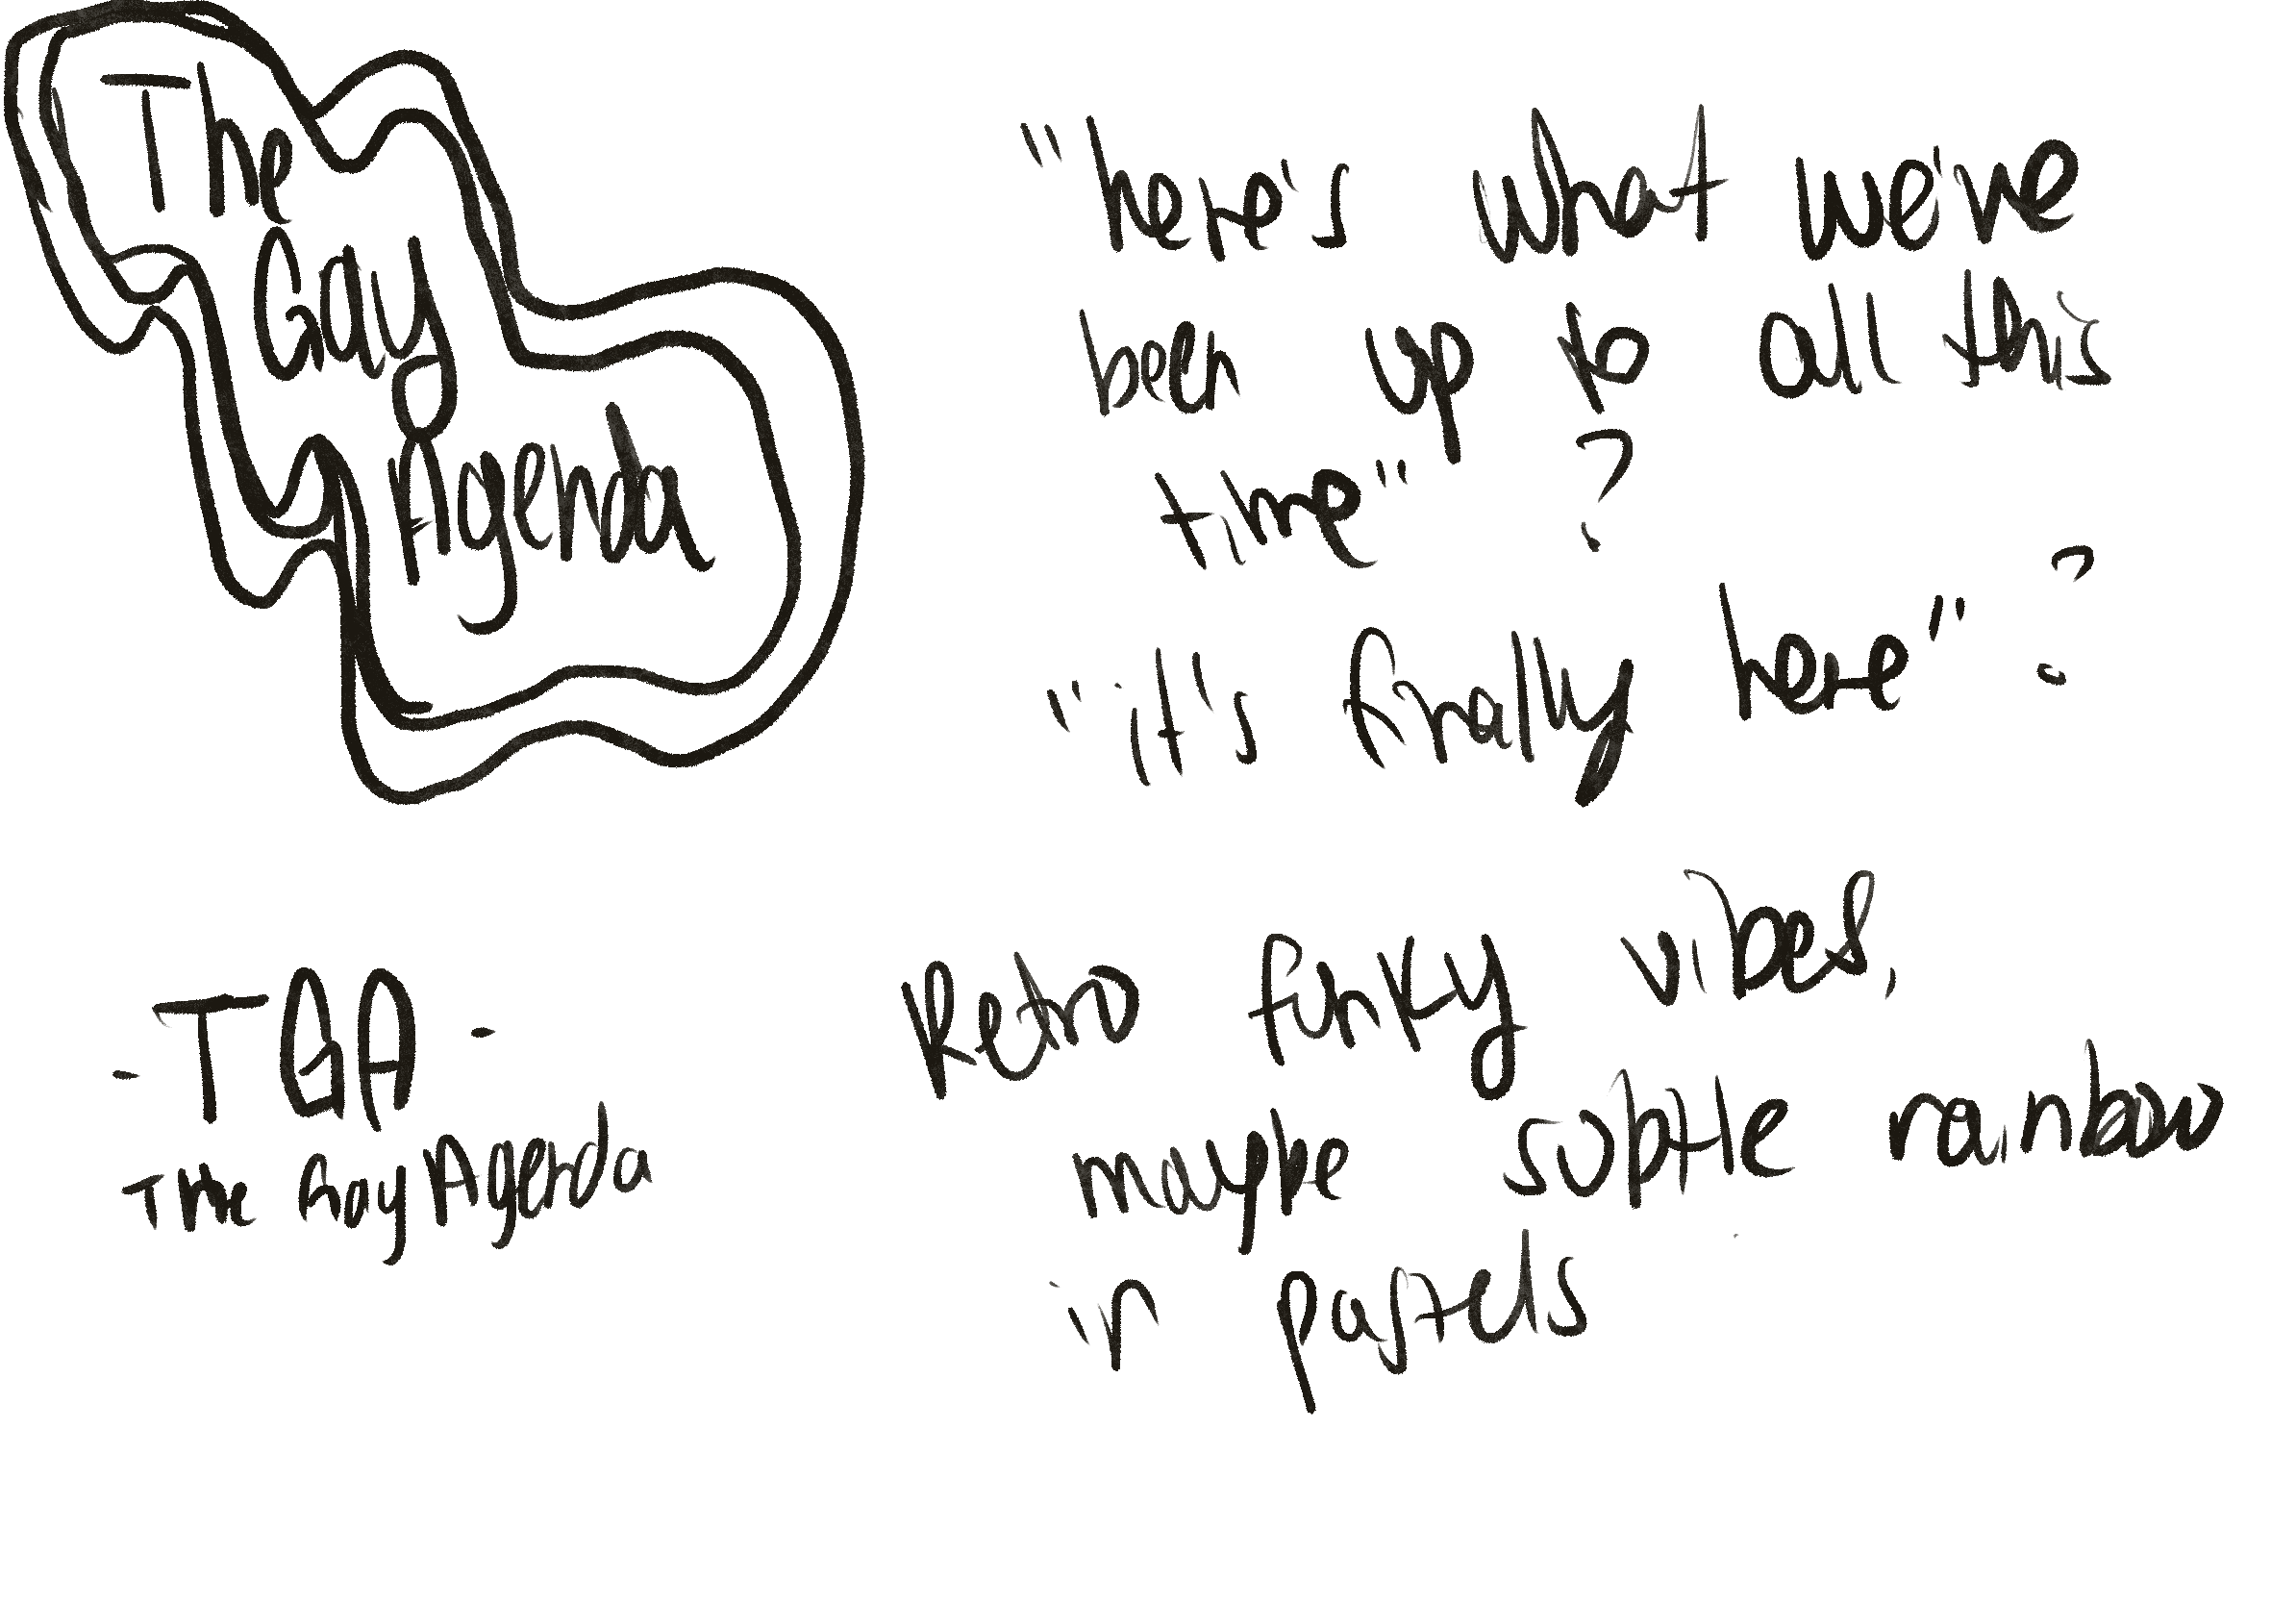 The
Gay
Agenda
"here's what we've
been up to all this
time" ?
"it's finally here" ?
-TGA-
The Gay Agenda
Retro funky vibes,
maybe subtle rainbow
in pastels